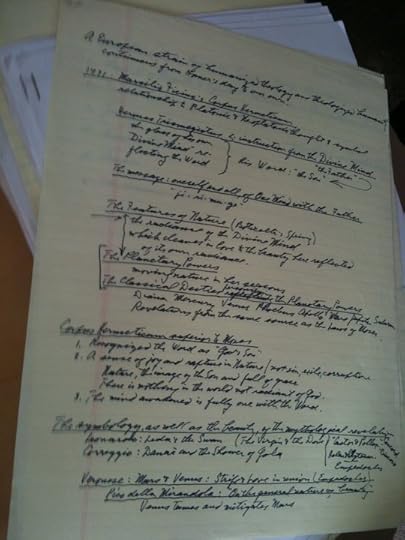 A European strain of humanistic theology and theological humanity
continuous from Homer's day to our own
1471: Marsilio Ficino's Corpus Hermeticum
relationship to Platonic & Neoplatonic thought & symbol
Hermes Trismegistus is instructor from the Divine Mind
the glass of his own
Divine Mind re-
flecting the Word
his Word: "the Son"
"the Father"
The message: oneself and all of One Mind with the Father
"ji-ri-mu-ge"
The Features of Nature (Botticelli: Spring)
the radiance of the Divine Mind
which cleaves in love to the beauty her reflected
of its own radiance.
The Planetary Powers
moving nature in her seasons
The Classical Deities the Planetary Powers
Diana Mercury Venus Phoebus Apollo Mars
Revelations from the same source as the Laws of Moses.
Corpus Hermeticum superior to Moses
1. Recognized the Word as "God's Son"
2. A sense of joy and rapture in Nature / not sin, exile, corruption
Nature, the image of the Son and full of grace
There is nothing in the world not resonant of God.
3. The mind awakened is fully one with the Verse.
The symbology, as well as the beauty, of the mythological revelations
Leonardo: Leda & the Swan (The Virgin & the Dove) Castor & Pollux
Correggio: Danaë and the Shower of Gold
Empedocles
Veronese: Mars & Venus: Strife & Love in union (Empedocles)
Pico della Mirandola: On the general nature of Beauty
Venus tames and mitigates Mars